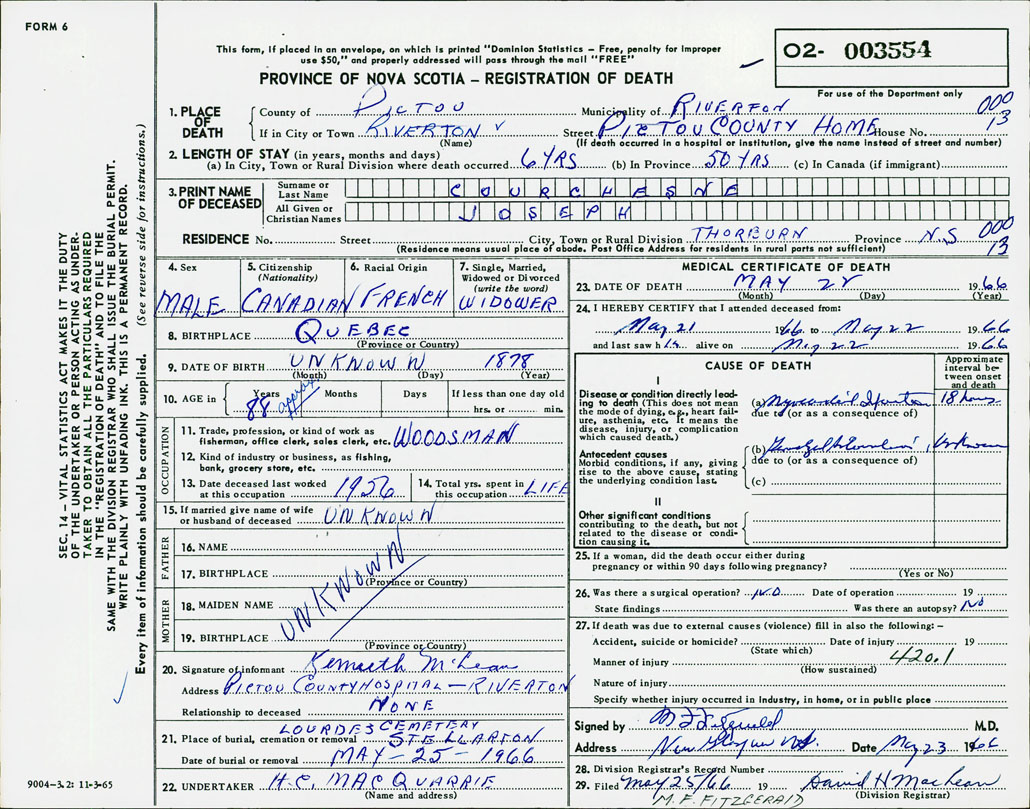 FORM 6
This form, if placed in an envelope, on which is printed "Dominion Statistics – Free, penalty for improper
use $50," and properly addressed will pass through the mail "FREE"
PROVINCE OF NOVA SCOTIA – REGISTRATION OF DEATH
02- 003554
For use of the Department only
SEC. 14 – VITAL STATISTICS ACT MAKES IT THE DUTY
OF THE UNDERTAKER OR PERSON ACTING AS UNDER-
TAKER TO OBTAIN ALL THE PARTICULARS REQUIRED
IN THE "REGISTRATION OF DEATH" AND TO FILE THE
SAME WITH THE DIVISION REGISTRAR WHO SHALL ISSUE THE BURIAL PERMIT.
WRITE PLAINLY WITH UNFADING INK. THIS IS A PERMANENT RECORD.
Every item of information should be carefully supplied. (See reverse side for instructions.)
1. PLACE OF DEATH
County of PICTOU Municipality of RIVERTON 000
If in City or Town RIVERTON Street PICTOU COUNTY HOME House No. 13
(Name) (If death occurred in a hospital or institution, give the name instead of street and number)
2. LENGTH OF STAY (in years, months and days)
(a) In City, Town or Rural Division where death occurred 6 YRS (b) In Province 50 YRS (c) In Canada (if immigrant)
3. PRINT NAME OF DECEASED
Surname or Last Name COURCHESNE
All Given or Christian Names JOSEPH
RESIDENCE No. Street City, Town or Rural Division THORBURN Province N.S 000
(Residence means usual place of abode. Post Office Address for residents in rural parts not sufficient) 13
4. Sex MALE
5. Citizenship (Nationality) CANADIAN
6. Racial Origin FRENCH
7. Single, Married, Widowed or Divorced (write the word) WIDOWER
8. BIRTHPLACE QUEBEC
(Province or Country)
9. DATE OF BIRTH UNKNOWN 1878
(Month) (Day) (Year)
10. AGE in Years Months Days If less than one day old
88 approx hrs. or min.
OCCUPATION
11. Trade, profession, or kind of work as
fisherman, office clerk, sales clerk, etc. WOODSMAN
12. Kind of industry or business, as fishing,
bank, grocery store, etc.
13. Date deceased last worked
at this occupation 1956
14. Total yrs. spent in
this occupation LIFE
15. If married give name of wife
or husband of deceased UNKNOWN
FATHER
16. NAME
17. BIRTHPLACE
(Province or Country)
UNKNOWN
MOTHER
18. MAIDEN NAME
19. BIRTHPLACE
(Province or Country)
20. Signature of informant Kenneth McLean
Address PICTOU COUNTY HOSPITAL – RIVERTON
Relationship to deceased NONE
LOURDES CEMETERY
21. Place of burial, cremation or removal STELLARTON
Date of burial or removal MAY – 25 – 1966
22. UNDERTAKER H.C. MACQUARRIE
(Name and address)
9004-3.2: 11-3-65
MEDICAL CERTIFICATE OF DEATH
23. DATE OF DEATH MAY 22 1966
(Month) (Day) (Year)
24. I HEREBY CERTIFY that I attended deceased from:
May 21 1966 to May 22 1966
and last saw h i.m. alive on May 22 1966
CAUSE OF DEATH
Approximate
interval be-
tween onset
and death
I
Disease or condition directly lead-
ing to death (This does not mean
the mode of dying, e.g., heart fail-
ure, asthenia, etc. It means the
disease, injury, or complication
which caused death.)
(a) Myocardial Infarction 18 hours
due to (or as a consequence of)
Antecedent causes
Morbid conditions, if any, giving
rise to the above cause, stating
the underlying condition last.
(b) Unknown
due to (or as a consequence of)
(c)
II
Other significant conditions
contributing to the death, but not
related to the disease or condi-
tion causing it.
25. If a woman, did the death occur either during
pregnancy or within 90 days following pregnancy?
(Yes or No)
26. Was there a surgical operation? NO Date of operation 19
State findings Was there an autopsy? No
27. If death was due to external causes (violence) fill in also the following: –
Accident, suicide or homicide? Date of injury 19
(State which) 420.1
Manner of injury
(How sustained)
Nature of injury
Specify whether injury occurred in industry, in home, or in public place
Signed by M F Fitzgerald M.D.
Address New Glasgow N.S. Date May 23 1966
28. Division Registrar's Record Number
29. Filed May 25/66 19 David H MacLean
(Division Registrar)
M. F. FITZGERALD